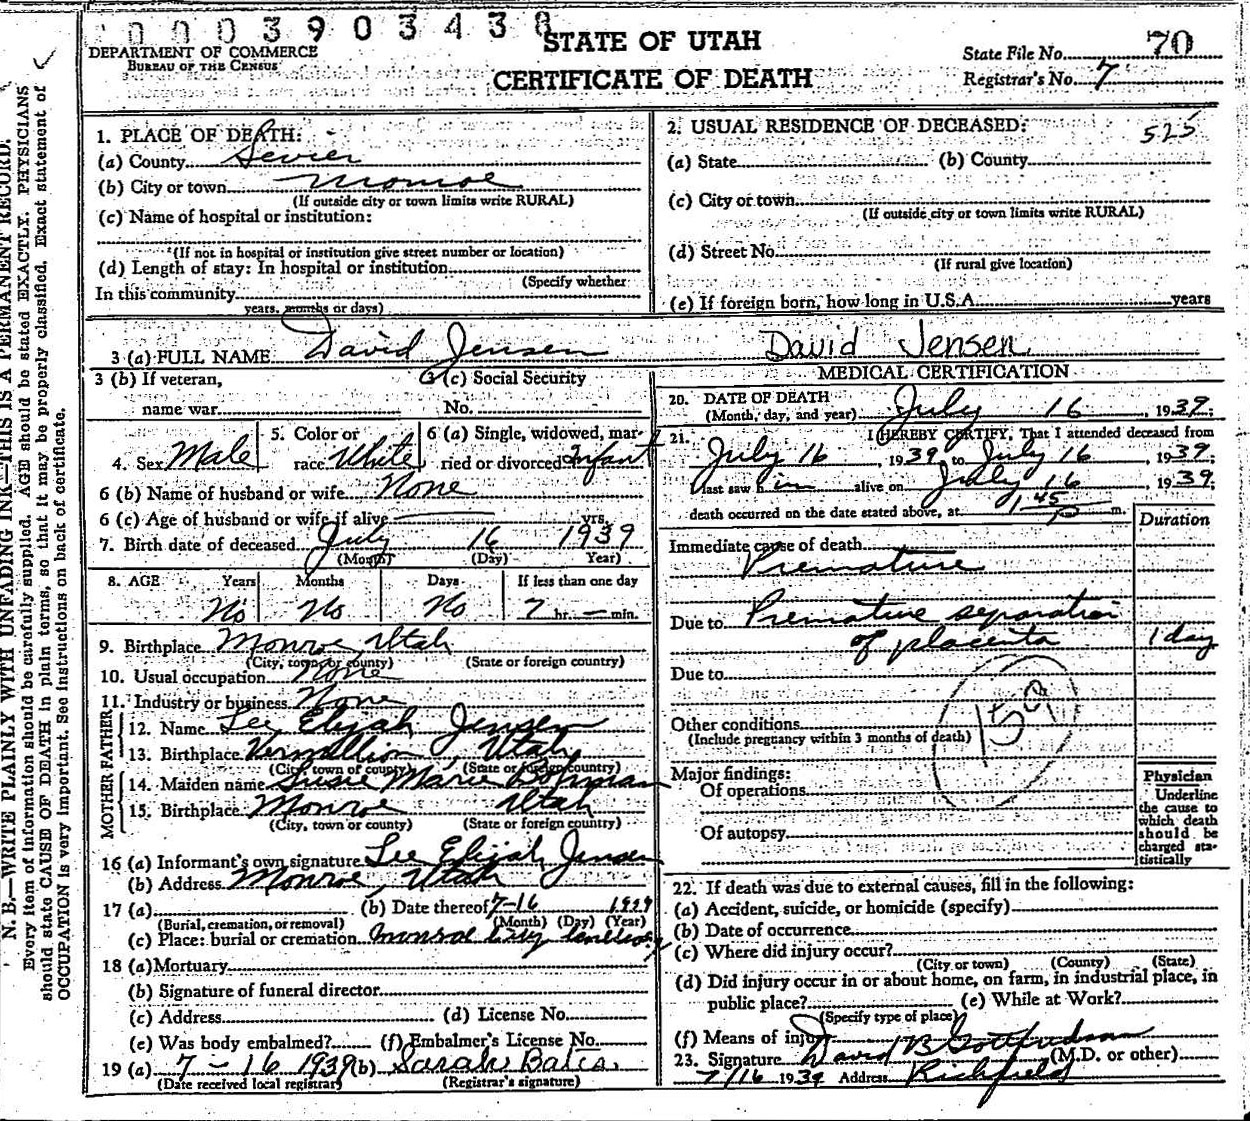 0003903438
DEPARTMENT OF COMMERCE
BUREAU OF THE CENSUS
STATE OF UTAH
CERTIFICATE OF DEATH
State File No. 70
Registrar's No. 7
N. B.—WRITE PLAINLY WITH UNFADING INK—THIS IS A PERMANENT RECORD.
Every item of information should be carefully supplied. AGE should be stated EXACTLY. PHYSICIANS
should state CAUSE OF DEATH in plain terms, so that it may be properly classified. Exact statement of
OCCUPATION is very important. See instructions on back of certificate.
1. PLACE OF DEATH:
(a) County Sevier
(b) City or town Monroe
(If outside city or town limits write RURAL)
(c) Name of hospital or institution:
(If not in hospital or institution give street number or location)
(d) Length of stay: In hospital or institution
(Specify whether
In this community
years, months or days)
2. USUAL RESIDENCE OF DECEASED:
525
(a) State (b) County
(c) City or town
(If outside city or town limits write RURAL)
(d) Street No.
(If rural give location)
(e) If foreign born, how long in U.S.A. years
3 (a) FULL NAME David Jensen David Jensen
3 (b) If veteran, name war
3 (c) Social Security No.
4. Sex Male
5. Color or race White
6 (a) Single, widowed, married or divorced Infant
6 (b) Name of husband or wife None
6 (c) Age of husband or wife if alive yrs.
7. Birth date of deceased July 16 1939
(Month) (Day) Year)
8. AGE Years Months Days If less than one day
No No No 7 hr. — min.
9. Birthplace Monroe, Utah
(City, town or county) (State or foreign country)
10. Usual occupation None
11. Industry or business None
FATHER
12. Name Lee Elijah Jensen
13. Birthplace Vermillion, Utah
(City, town or county) (State or foreign country)
MOTHER
14. Maiden name Susie Marie
15. Birthplace Monroe Utah
(City, town or county) (State or foreign country)
16 (a) Informant's own signature Lee Elijah Jensen
(b) Address Monroe, Utah
17 (a) (b) Date thereof 7-16 1939
(Burial, cremation, or removal) (Month) (Day) (Year)
(c) Place: burial or cremation Monroe City Cemetery
18 (a) Mortuary
(b) Signature of funeral director
(c) Address (d) License No.
(e) Was body embalmed? (f) Embalmer's License No.
19 (a) 7 – 16 1939 (b) Sarah Bates.
(Date received local registrar) (Registrar's signature)
MEDICAL CERTIFICATION
20. DATE OF DEATH
(Month, day, and year) July 16, 1939;
21. I HEREBY CERTIFY, That I attended deceased from
July 16, 1939, to July 16, 1939;
last saw him alive on July 16, 1939;
death occurred on the date stated above, at 1 45 P m.
Duration
Immediate cause of death
Premature
Due to Premature separation
of placenta 1 day
Due to
Other conditions
(Include pregnancy within 3 months of death)
159
Major findings:
Of operations
Of autopsy
Physician
Underline
the cause to
which death
should be
charged sta-
tistically
22. If death was due to external causes, fill in the following:
(a) Accident, suicide, or homicide (specify)
(b) Date of occurrence
(c) Where did injury occur?
(City or town) (County) (State)
(d) Did injury occur in or about home, on farm, in industrial place, in
public place? (e) While at Work?
(Specify type of place)
(f) Means of injury
23. Signature David B Gottfredson (M.D. or other)
7/16 1939 Address Richfield